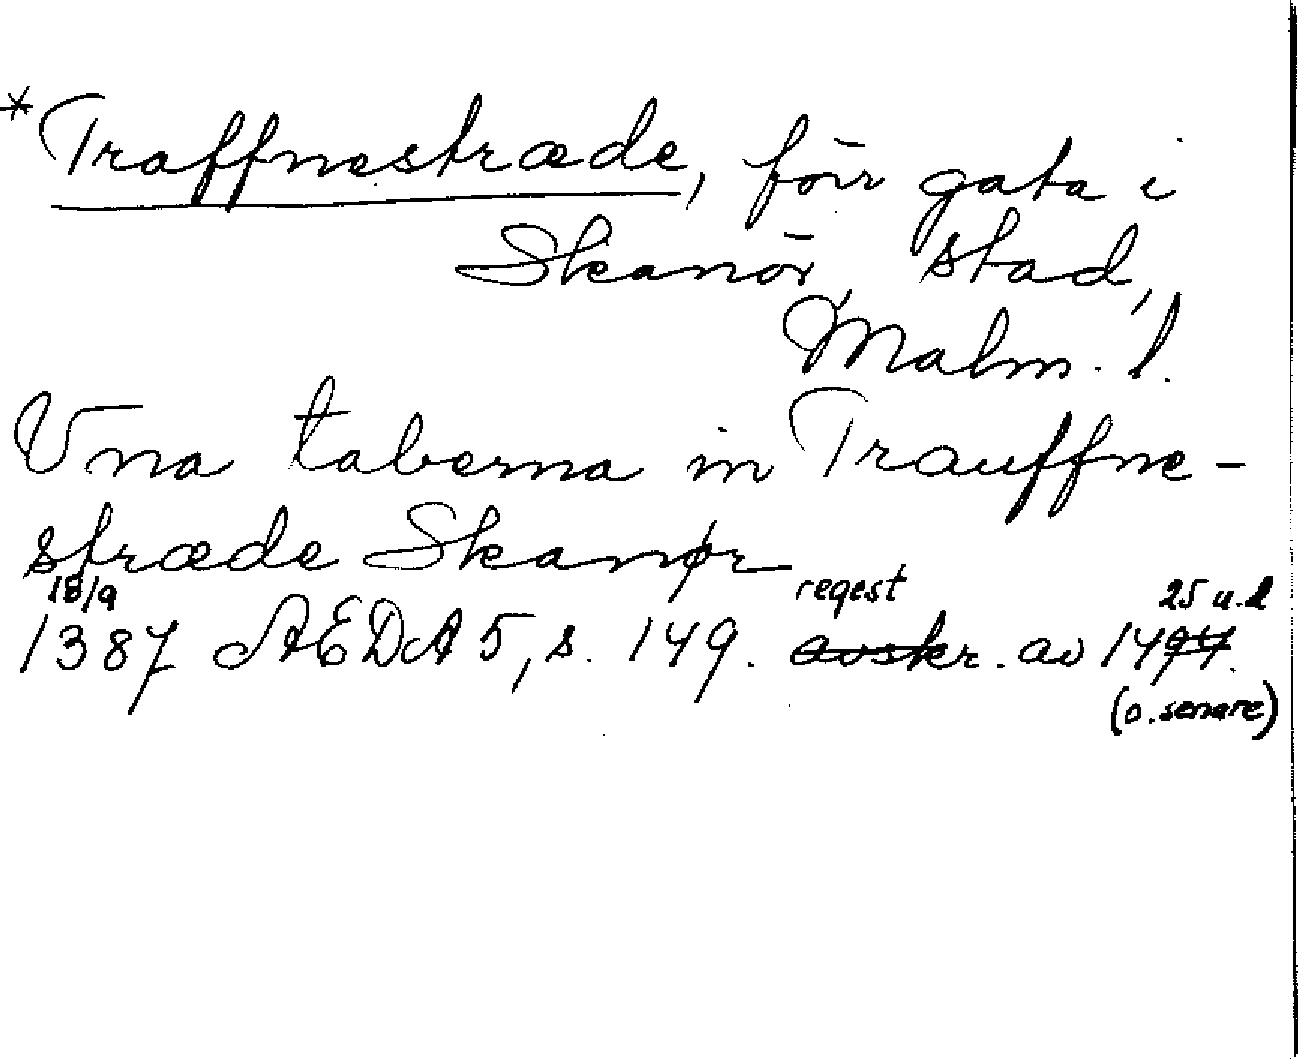 *Traffnestræde, förr gata i
Skanör, stad,
Malm. l.
Vna taberna in Trauffne-
stræde Skanør
18/9 regest 25 u.d
1387 AEDA 5, s. 149. avskr. av 1494.
(o. senare)